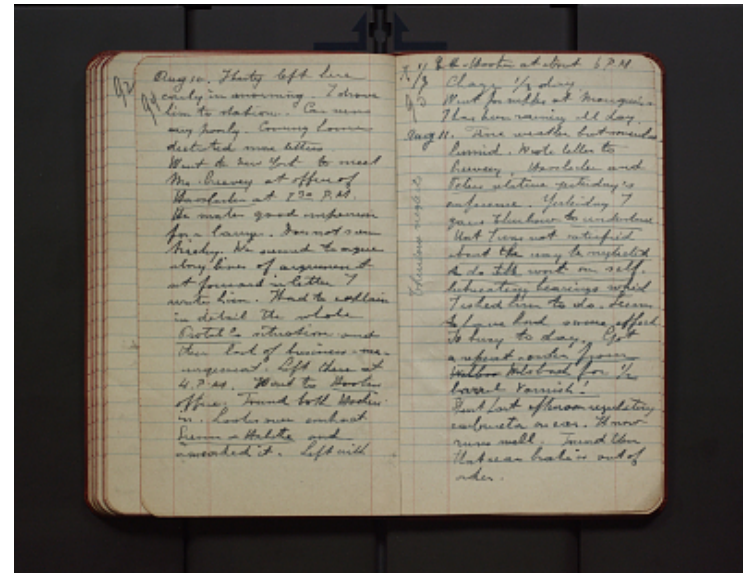 92
94
Aug 10. Thurlty left here
early in morning. I drove
him to station. Car runs
very poorly. Coming home
dictated more letters.
Went to New York to meet
Mr. Creavey at office of
at 1 30 P.M.
He makes good impression
for a lawyer. Does not seem
He seemed to argue
along lines of argument
set forward in letter I
wrote him. I had to explain
in detail the whole
situation and
their lack of business man-
agement. Left there at
4 P.M. Went to Hooker
office. Found both Hookers
in. Looks over contract
and
amended it. Left with
E. H. Hooker at about 6 P.M.
1/3 Charge 1/3 day
93 Went for supper at Mouquin's
Thas been rainy all day.
Aug 11. Fine weather but somewhat
humid. Wrote letter to
Creavey, and
relative yesterday's
conference. Yesterday I
gave Thurlow to understand
that I was not satisfied
about the way he neglected
to do the work on self-
lubricating bearings which
I asked him to do. Seems
to have had some effect
Is busy to day. Got
a repeat order from
for 1/2
barrel Varnish!
Spent last afternoon regulating
carburetor on car. It now
runs well. Found then
that rear brake is out of
order.
neglects